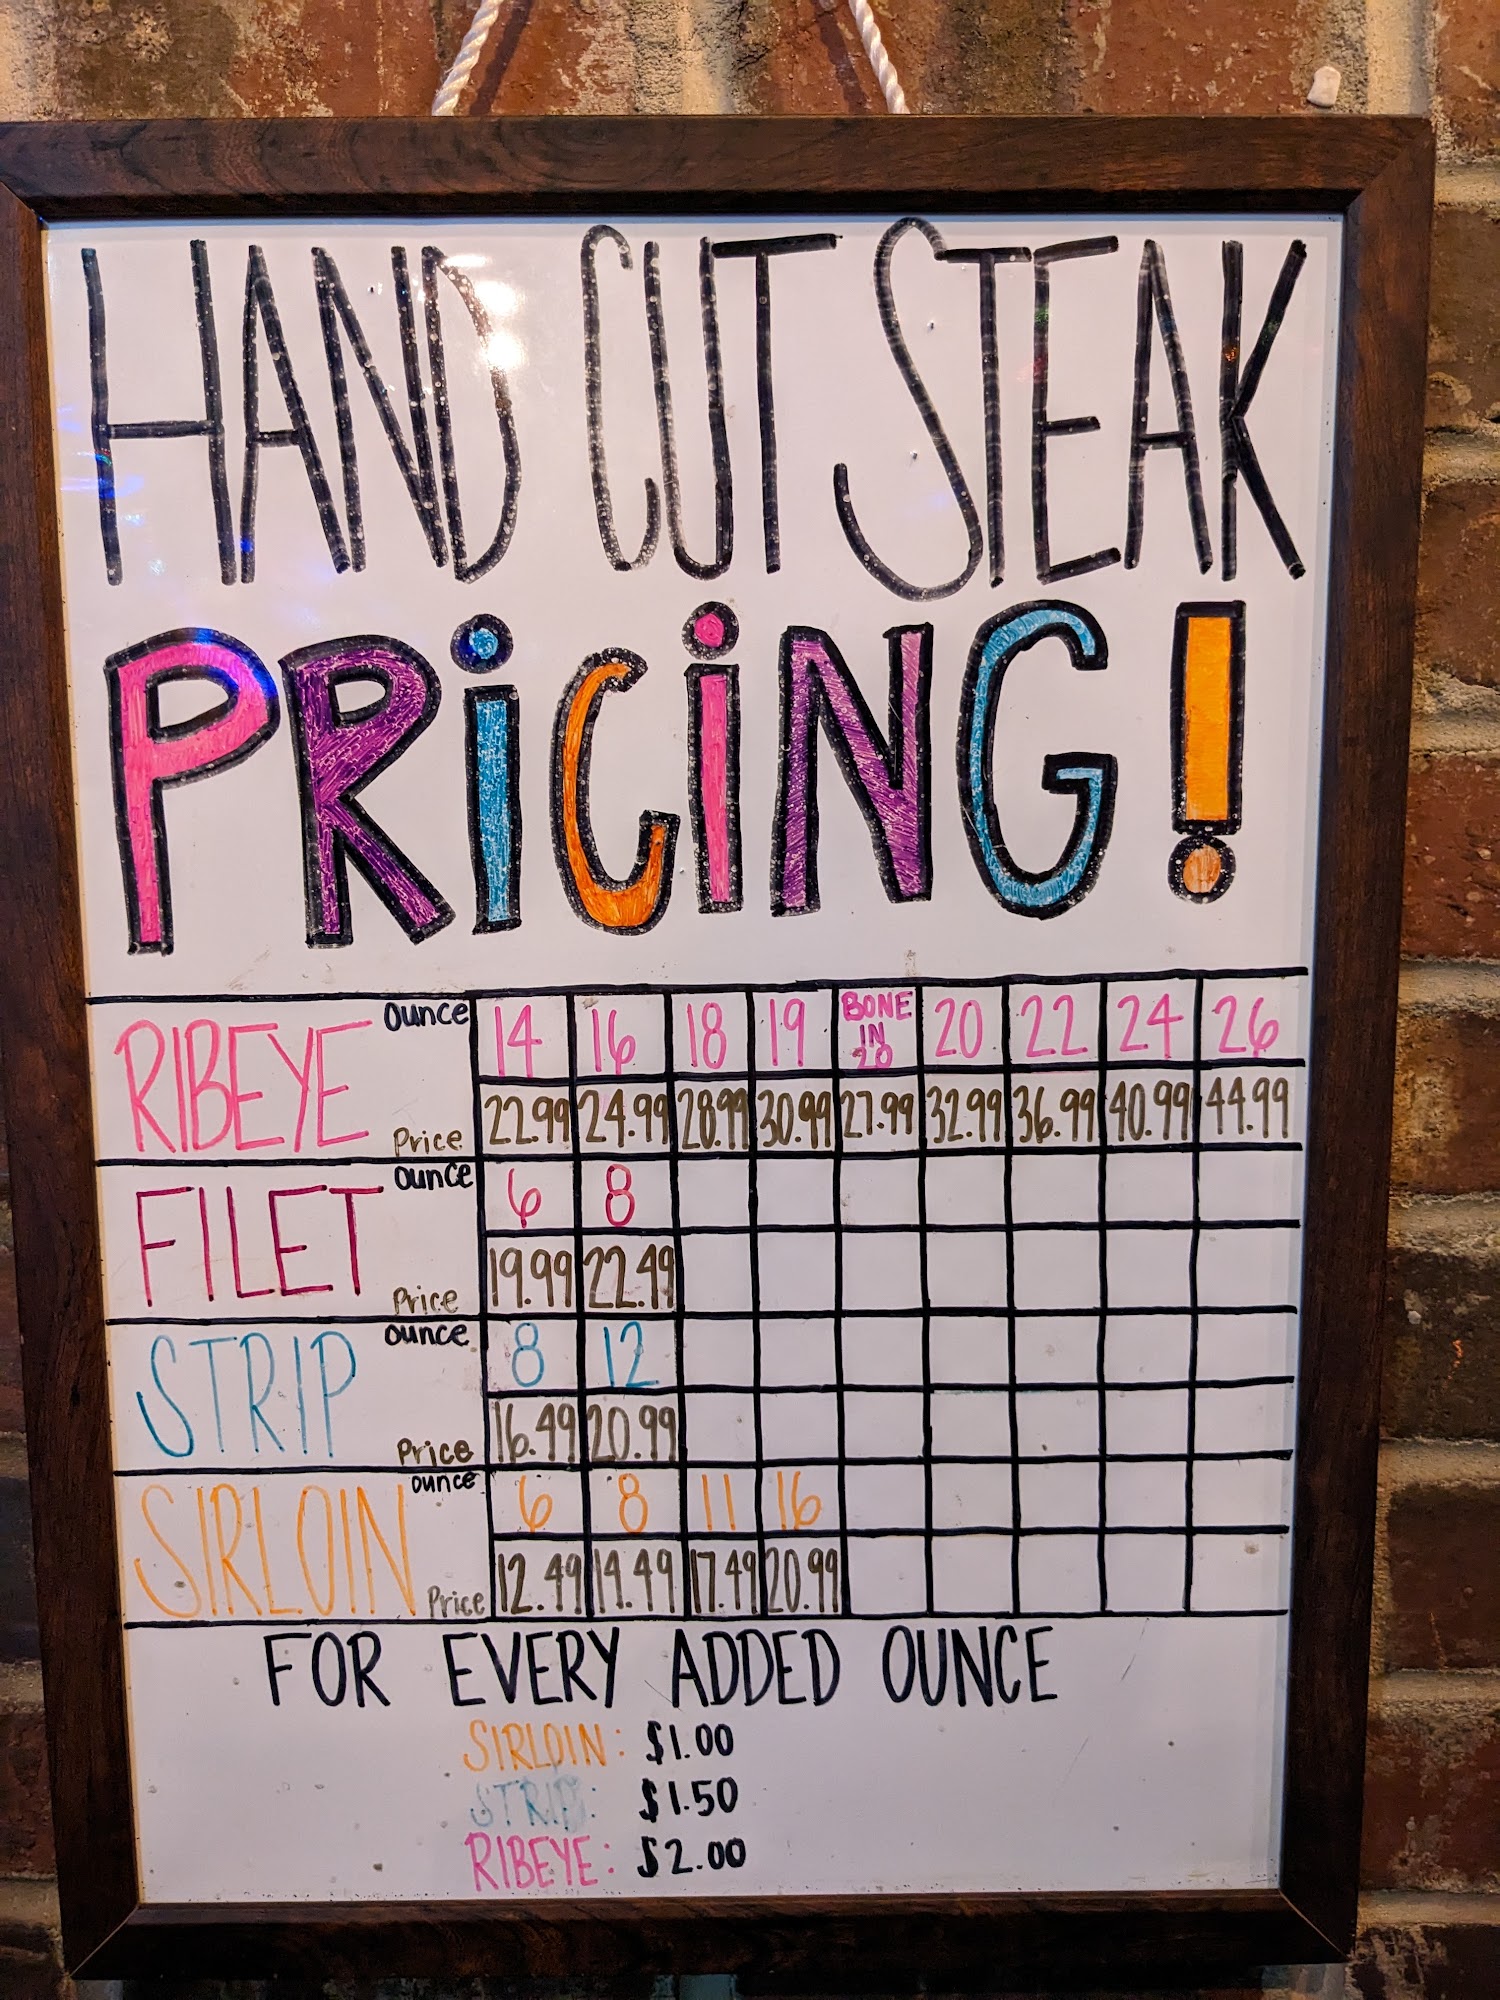 HAND CUT STEAK
PRiCiNG!
RIBEYE ounce 14 16 18 19 BONE IN 20 20 22 24 26
Price 22.99 24.99 28.99 30.99 27.99 32.99 36.99 40.99 44.99
FILET ounce 6 8
Price 19.99 22.49
STRIP ounce 8 12
Price 16.49 20.99
SIRLOIN ounce 6 8 11 16
Price 12.49 14.49 17.49 20.99
FOR EVERY ADDED OUNCE
SIRLOIN: $1.00
STRIP: $1.50
RIBEYE: $2.00